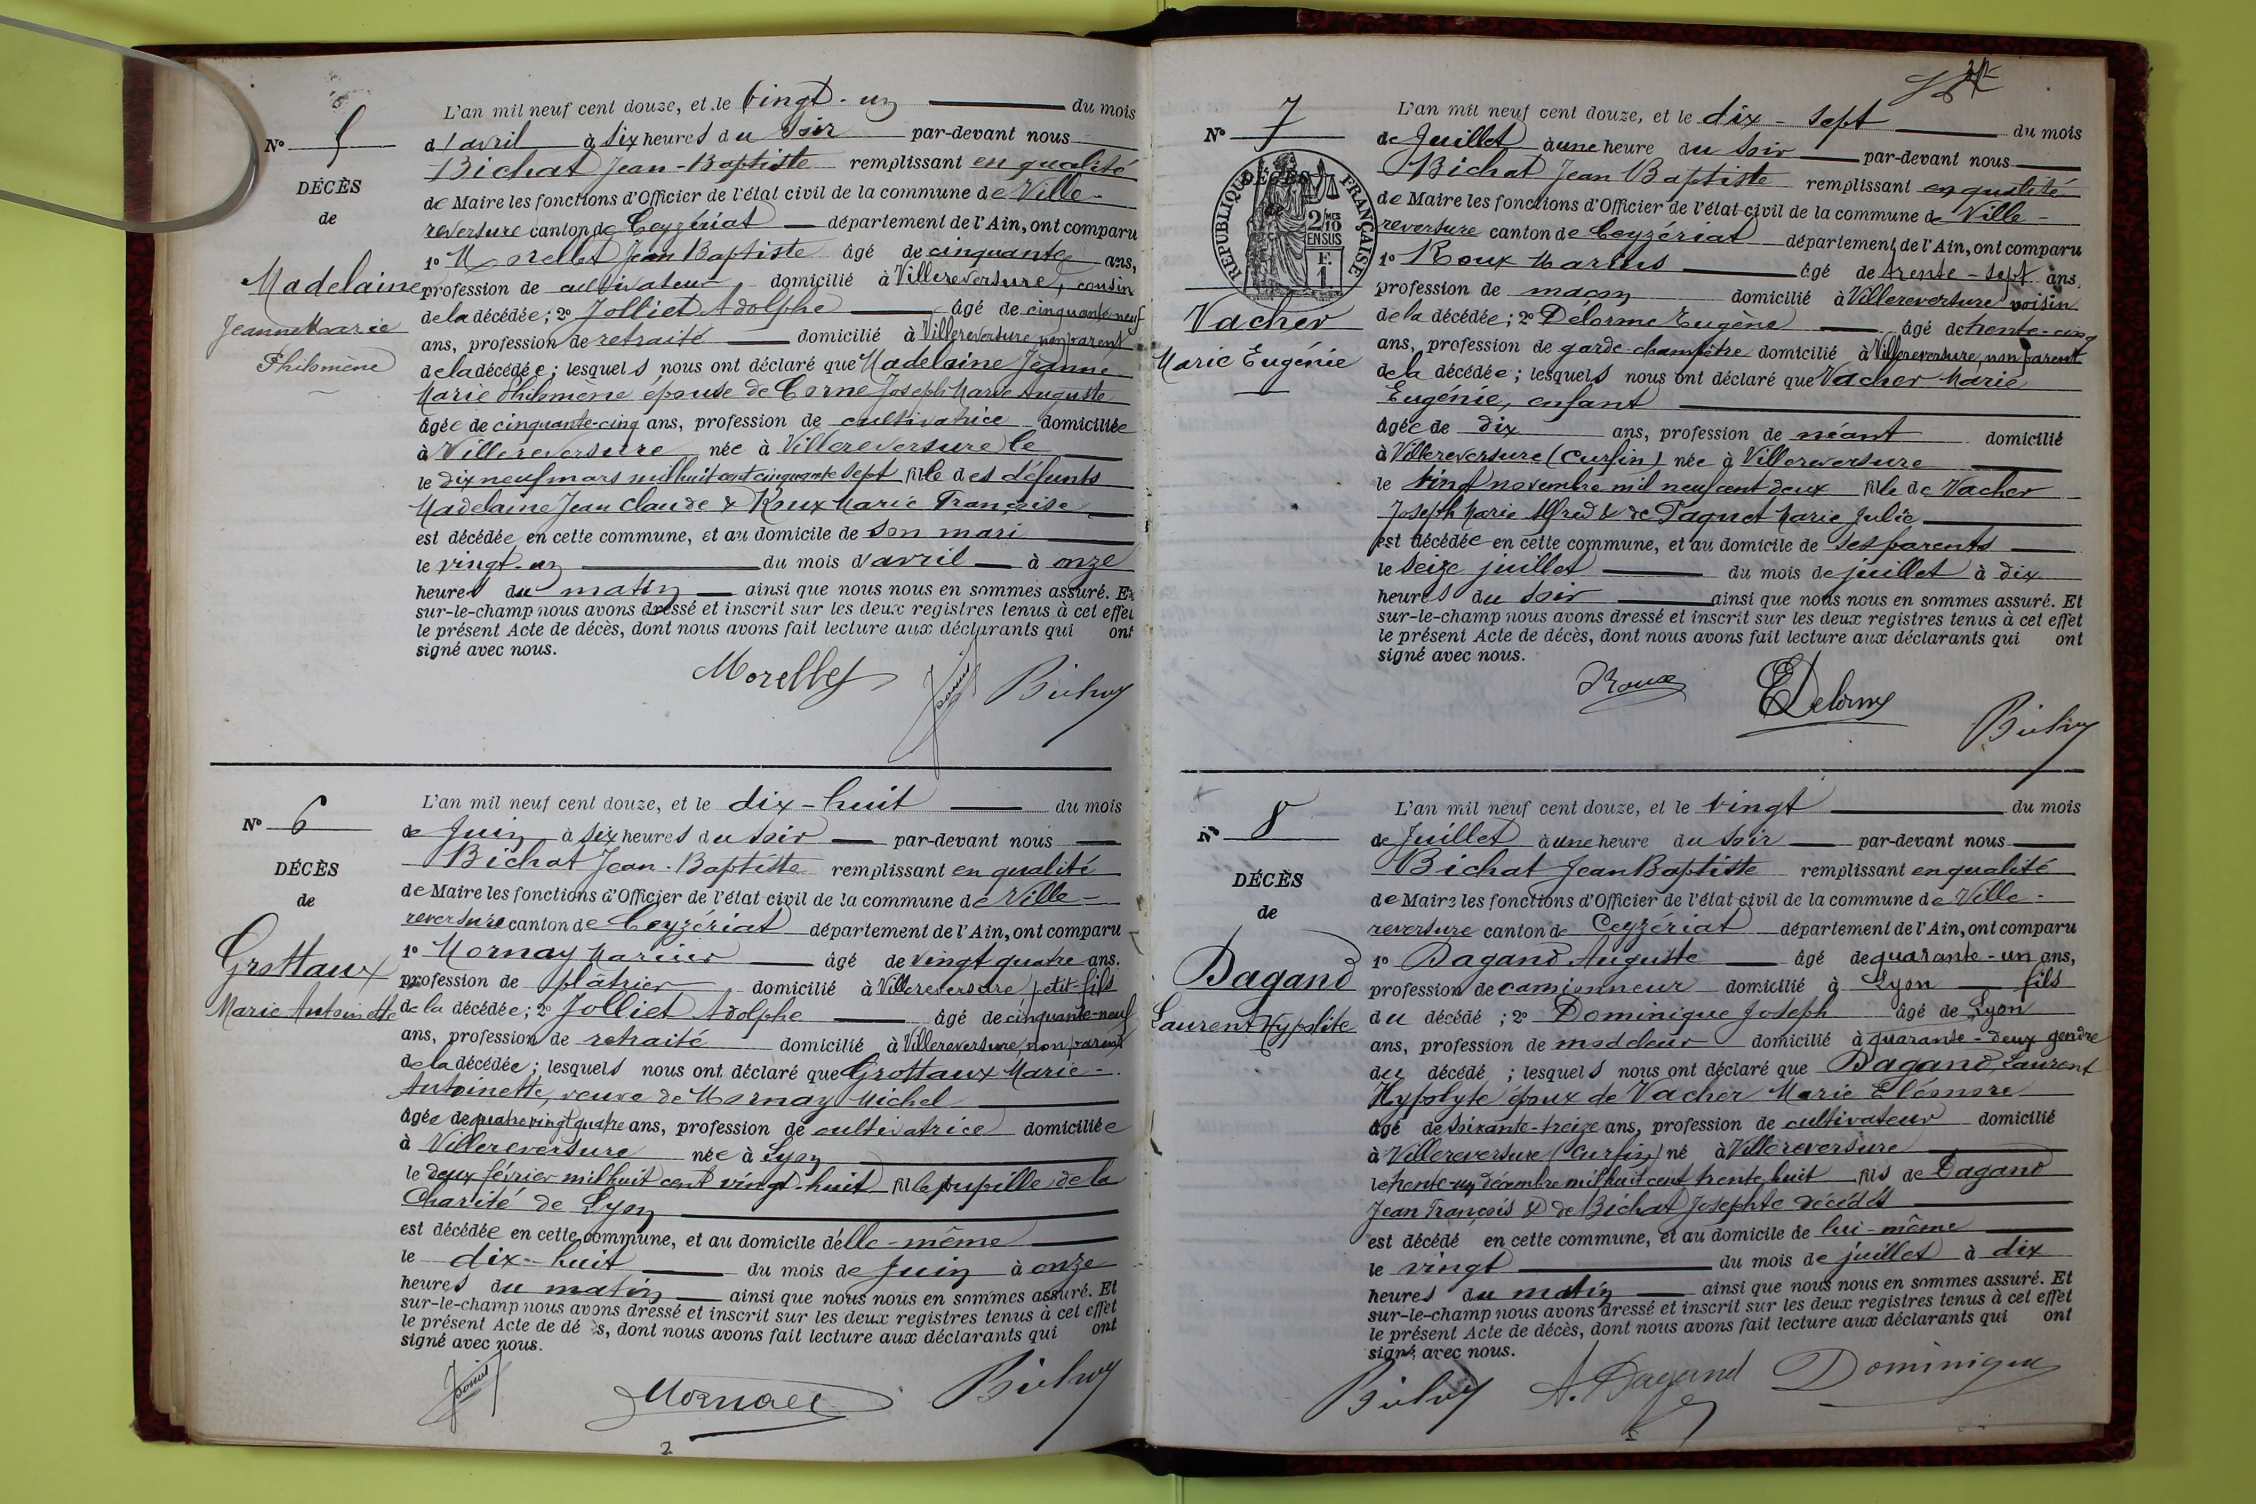 N° 5
DÉCÈS
de
Madelaine
Jeanne Marie
Philomène
L'an mil neuf cent douze, et le vingt-un du mois
d'avril à six heures du soir par-devant nous
Bichat Jean-Baptiste remplissant en qualité
de Maire les fonctions d'Officier de l'état civil de la commune de Ville-
reversure canton de Ceyzériat département de l'Ain, ont comparu
1° Morellet Jean Baptiste âgé de cinquante ans,
profession de cultivateur domicilié à Villereversure, cousin
de la décédée; 2° Jolliet Adolphe âgé de cinquante-neuf
ans, profession de retraité domicilié à Villereversure, non parent
de la décédée; lesquels nous ont déclaré que Madelaine Jeanne
Marie Philomène épouse de Corne Joseph Marie Auguste
âgée de cinquante-cinq ans, profession de cultivatrice domiciliée
à Villereversure née à Villereversure le
le dix neuf mars mil huit cent cinquante sept fille des défunts
Madelaine Jean Claude & Roux Marie Françoise
est décédée en cette commune, et au domicile de son mari
le vingt-un du mois d'avril à onze
heures du matin ainsi que nous nous en sommes assuré. Et
sur-le-champ nous avons dressé et inscrit sur les deux registres tenus à cet effet
le présent Acte de décès, dont nous avons fait lecture aux déclarants qui ont
signé avec nous.
Morellet Bichat
N° 6
DÉCÈS
de
Grottaux
Marie Antoinette
L'an mil neuf cent douze, et le dix-huit du mois
de Juin à six heures du soir par-devant nous
Bichat Jean-Baptiste remplissant en qualité
de Maire les fonctions d'Officier de l'état civil de la commune de Ville-
reversure canton de Ceyzériat département de l'Ain, ont comparu
1° Mornay Marius âgé de vingt quatre ans.
profession de plâtrier domicilié à Villereversure, petit-fils
de la décédée; 2° Jolliet Adolphe âgé de cinquante-neuf
ans, profession de retraité domicilié à Villereversure, non parent
de la décédée; lesquels nous ont déclaré que Grottaux Marie-
Antoinette, veuve de Mornay Michel
âgée de quatre vingt quatre ans, profession de cultivatrice domiciliée
à Villereversure née à Lyon
le deux février mil huit cent vingt-huit fille pupille de la
Charité de Lyon
est décédée en cette commune, et au domicile d'elle-même
le dix-huit du mois de Juin à onze
heures du matin ainsi que nous nous en sommes assuré. Et
sur-le-champ nous avons dressé et inscrit sur les deux registres tenus à cet effet
le présent Acte de dé s, dont nous avons fait lecture aux déclarants qui ont
signé avec nous.
Bichat
2
N° 7
RÉPUBLIQUE FRANÇAISE
DÉCÈS
de
2/10MES
EN SUS
F.
1
Vacher
Marie Eugénie
L'an mil neuf cent douze, et le dix-sept du mois
de Juillet à une heure du soir par-devant nous
Bichat Jean Baptiste remplissant en qualité
de Maire les fonctions d'Officier de l'état civil de la commune de Ville-
reversure canton de Ceyzériat département de l'Ain, ont comparu
1° Roux Marius âgé de trente-sept ans,
profession de maçon domicilié à Villereversure voisin
de la décédée; 2° Delorme Eugène âgé de trente-cinq
ans, profession de garde-champêtre domicilié à Villereversure, non parent
de la décédée; lesquels nous ont déclaré que Vacher Marie
Eugénie, enfant
âgée de dix ans, profession de néant domicilié
à Villereversure (Curfin) née à Villereversure
le vingt novembre mil neuf cent deux fille de Vacher
Joseph Marie Alfred & de Paquet Marie Julie
est décédée en cette commune, et au domicile de ses parents
le seize juillet du mois de juillet à dix
heures du soir ainsi que nous nous en sommes assuré. Et
sur-le-champ nous avons dressé et inscrit sur les deux registres tenus à cet effet
le présent Acte de décès, dont nous avons fait lecture aux déclarants qui ont
signé avec nous.
Roux EDelorme
Bichat
N° 8
DÉCÈS
de
Dagand
Laurent Hypolite
L'an mil neuf cent douze, et le vingt du mois
de Juillet à une heure du soir par-devant nous
Bichat Jean Baptiste remplissant en qualité
de Maire les fonctions d'Officier de l'état civil de la commune de Ville-
reversure canton de Ceyzériat département de l'Ain, ont comparu
1° Dagand Auguste âgé de quarante-un ans,
profession de camionneur domicilié à Lyon fils
du décédé; 2° Dominique Joseph âgé de Lyon
ans, profession de modeleur domicilié à quarante-deux gendre
du décédé; lesquels nous ont déclaré que Dagand, Laurent
Hypolyte époux de Vacher Marie Eléonore
âgé de soixante-treize ans, profession de cultivateur domicilié
à Villereversure (Curfin) né à Villereversure
le trente-un décembre mil huit cent trente huit fils de Dagand
Jean François & de Bichat Josephte décédés
est décédé en cette commune, et au domicile de lui-même
le vingt du mois de juillet à dix
heures du matin ainsi que nous nous en sommes assuré. Et
sur-le-champ nous avons dressé et inscrit sur les deux registres tenus à cet effet
le présent Acte de décès, dont nous avons fait lecture aux déclarants qui ont
signé avec nous.
Bichat A. Dagand Dominique